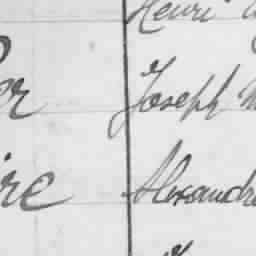 Henri
er Joseph
ire Alexandre